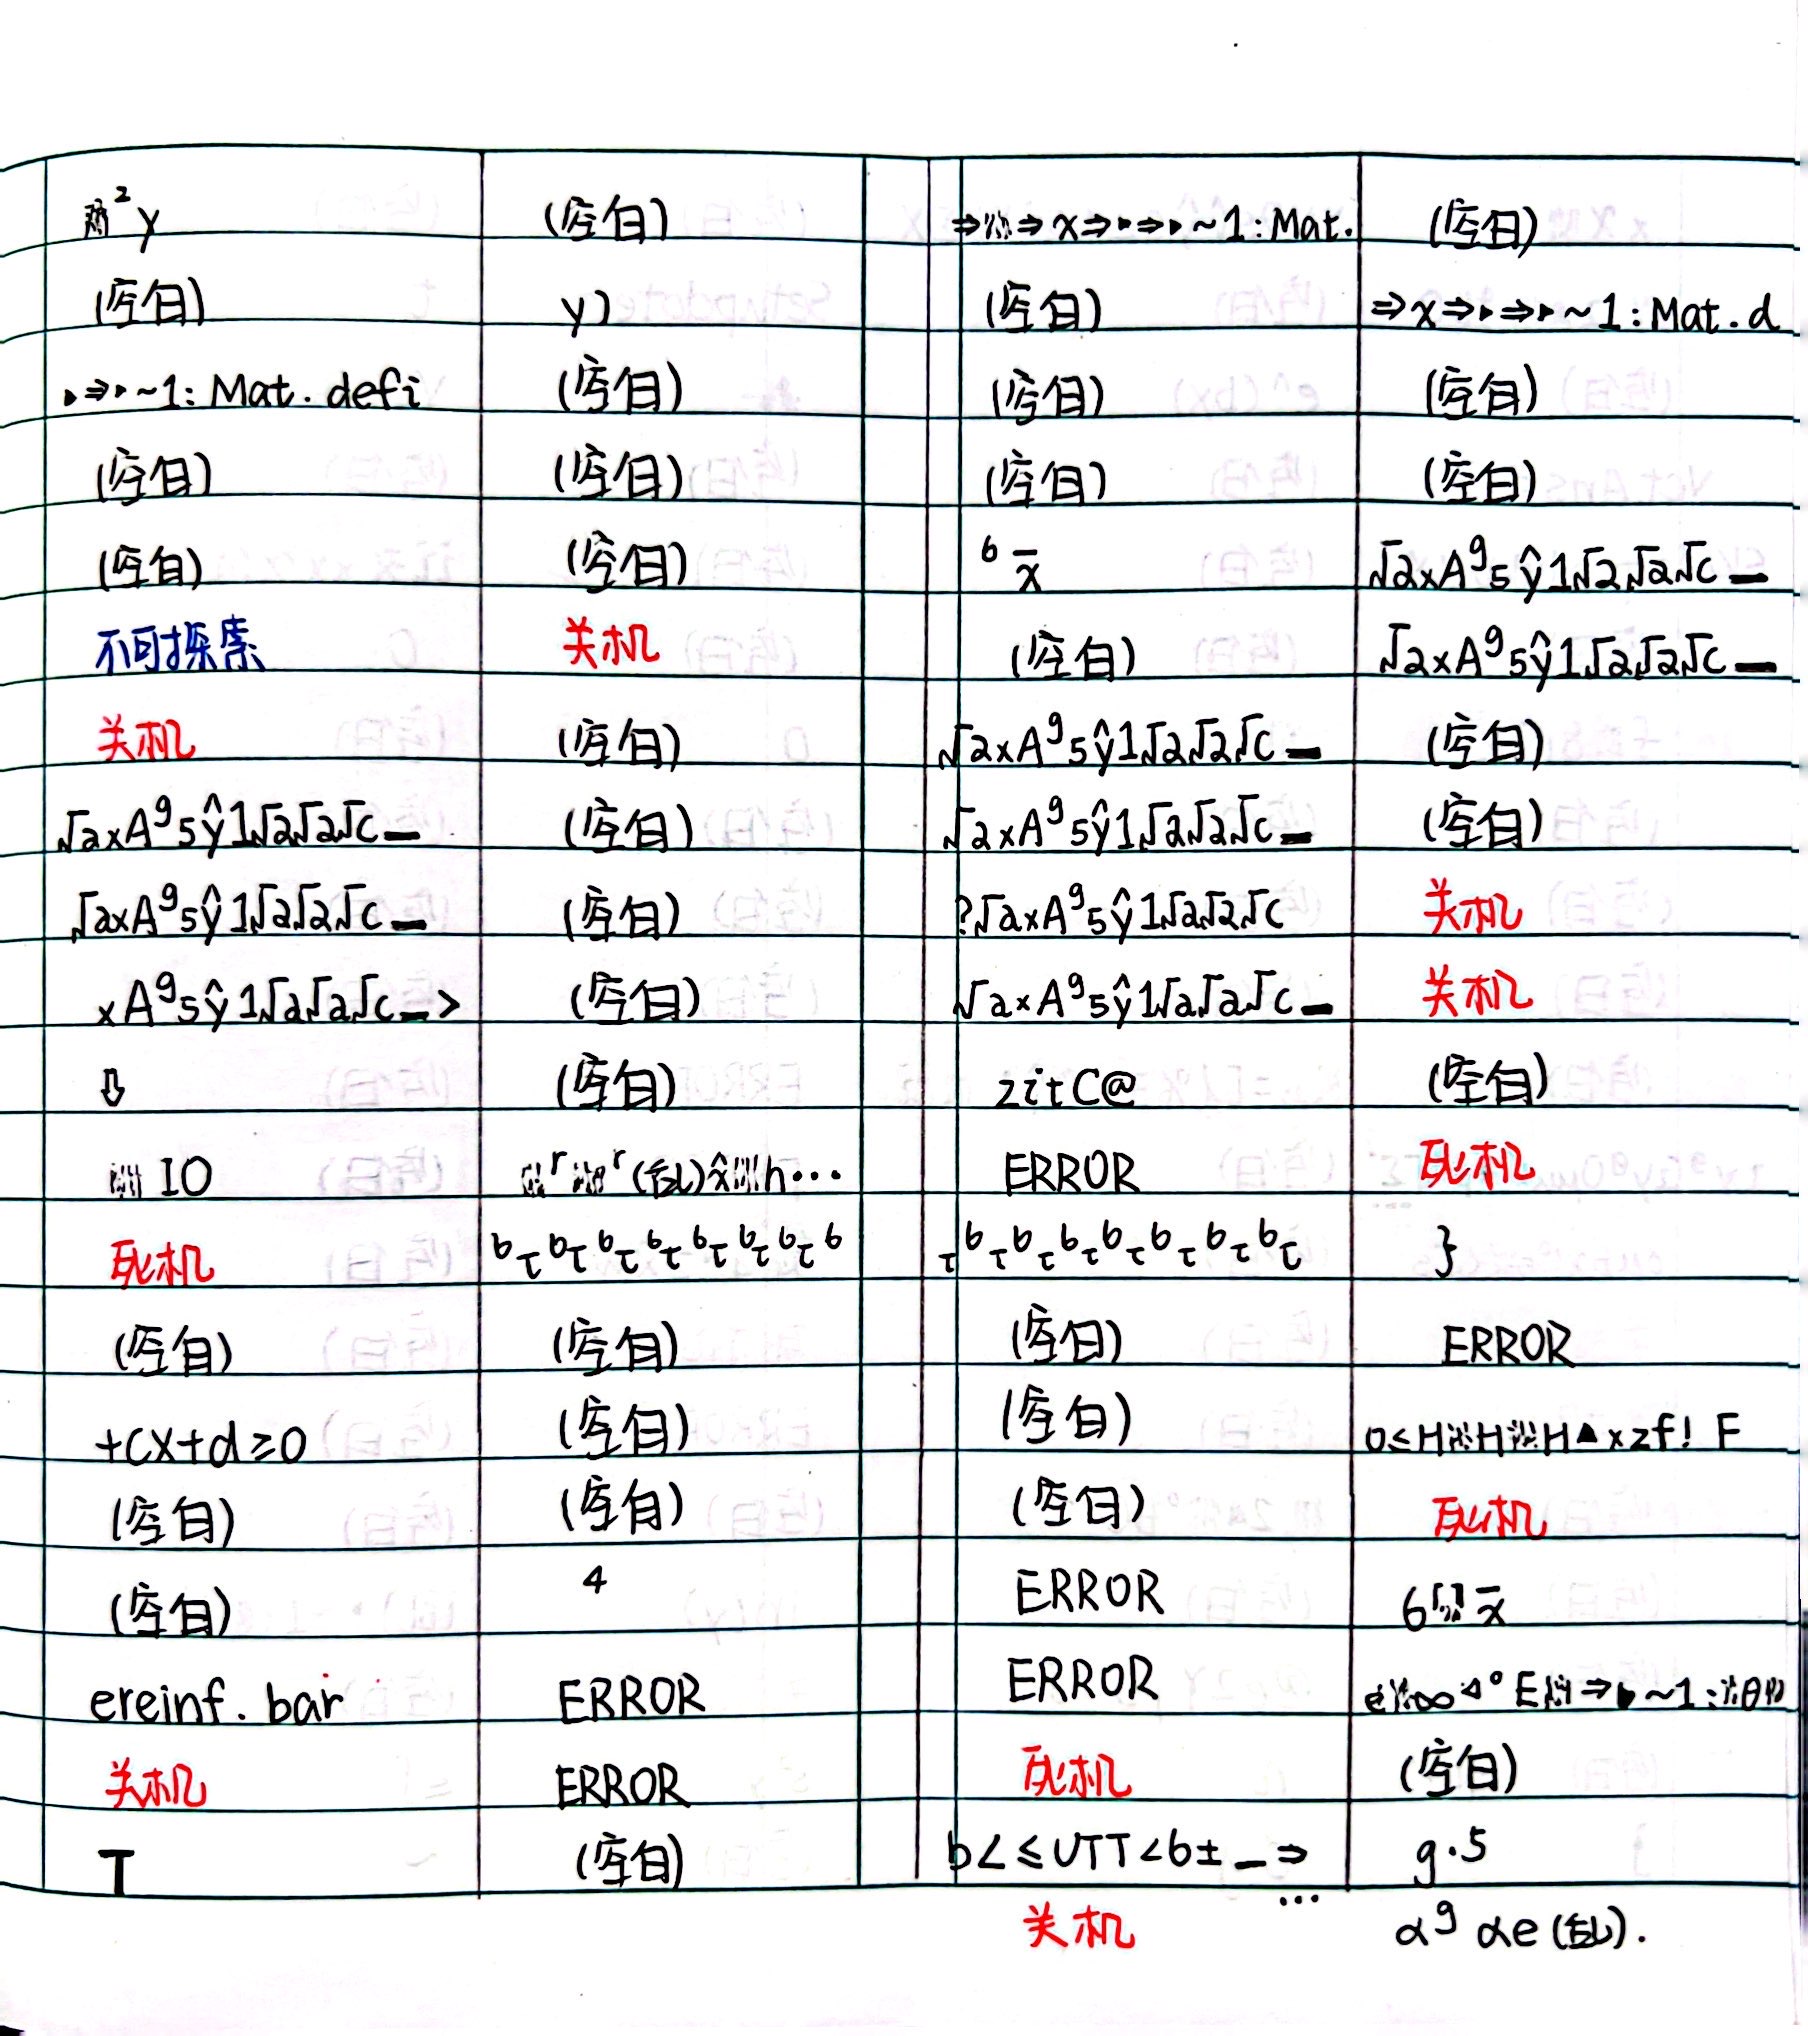 ² y (空白) ⇒ ⇒ x⇒▸⇒▸~1:Mat. (空白)
(空白) y) (空白) ⇒x⇒▸⇒▸~1:Mat.d
▸⇒▸~1:Mat.defi (空白) (空白) (空白)
(空白) (空白) (空白) (空白)
(空白) (空白) ⁶ x̄ √2xA⁹5ŷ1√2√2√c▁
不可探索 关机 (空白) √2xA⁹5ŷ1√2√2√c▁
关机 (空白) √2xA⁹5ŷ1√2√2√c▁ (空白)
√2xA⁹5ŷ1√2√2√c▁ (空白) √2xA⁹5ŷ1√2√2√c▁ (空白)
√2xA⁹5ŷ1√2√2√c▁ (空白) ?√2xA⁹5ŷ1√2√2√c 关机
xA⁹5ŷ1√2√2√c▁> (空白) √2xA⁹5ŷ1√2√2√c▁ 关机
⇩ (空白) zitC@ (空白)
IO ʳ ʳ(乱)x̂ h… ERROR 死机
死机 ᵇτᵇτᵇτᵇτᵇτᵇτᵇτᵇ τᵇτᵇτᵇτᵇτᵇτᵇτᵇτ }
(空白) (空白) (空白) ERROR
+cx+d≥0 (空白) (空白) 0≤H H H▲xzf! F
(空白) (空白) (空白) 死机
(空白) 4 ERROR 6 x̄
ereinf.bar ERROR ERROR e ∞ ⊿° E ⇒▸~1: θ
关机 ERROR 死机 (空白)
T (空白) b∠≤UTT<b±▁⇒… g.5
关机 α⁹ αe(乱).